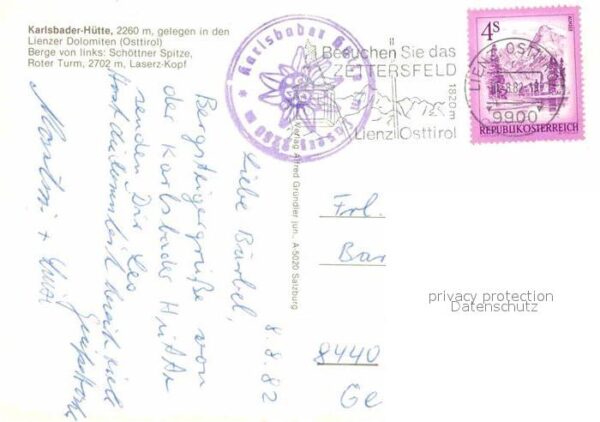 Karlsbader-Hütte, 2260 m, gelegen in den
Lienzer Dolomiten (Osttirol)
Berge von links: Schöttner Spitze,
Roter Turm, 2702 m, Laserz-Kopf
Karlsbader Hütte am Laserzsee 2260 m
Besuchen Sie das
ZETTERSFELD
1820 m
Lienz Osttirol
LIENZ, OSTTIROL
9900
4S
REPUBLIK ÖSTERREICH
8.8.82
Liebe Bärbel,
Bergsteigergrüße von
der Karlsbader Hütte
senden Dir Leo
Martin +
Verlag Alfred Gründler jun., A-5020 Salzburg
Frl.
Bar
8440
Ge
privacy protection
Datenschutz